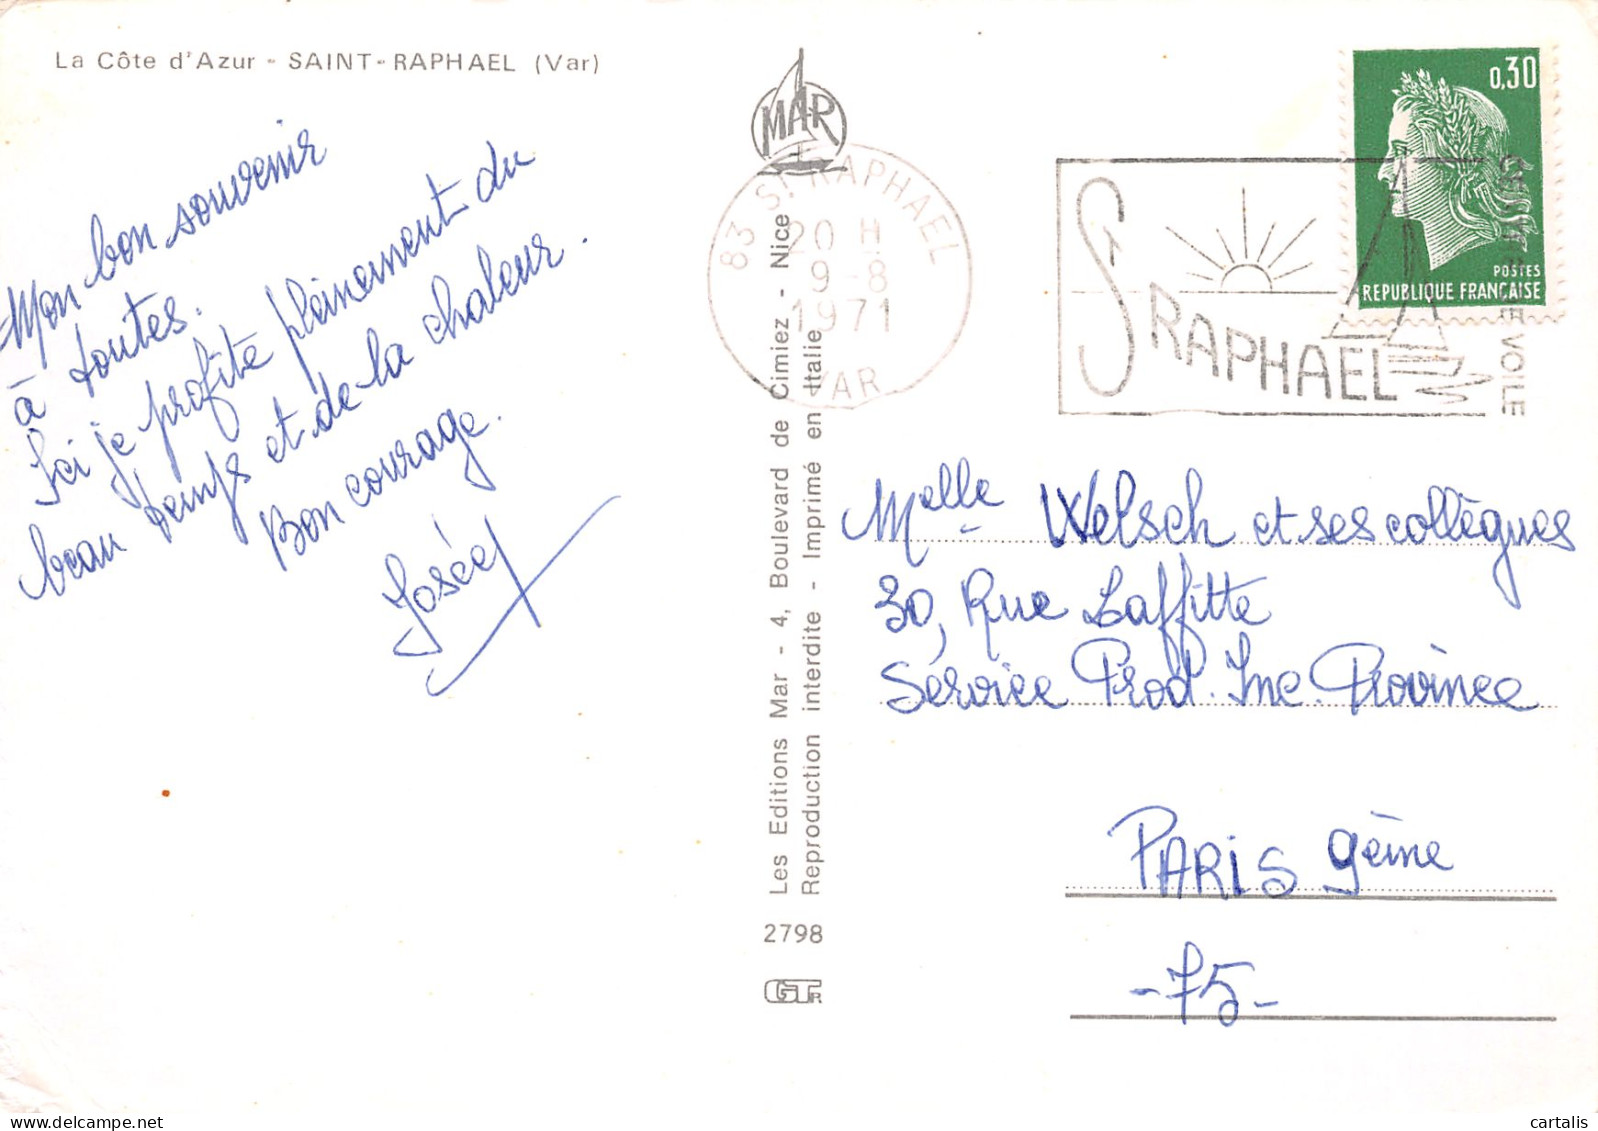 La Côte d'Azur - SAINT-RAPHAEL (Var)
Mon bon souvenir
à toutes.
Ici je profite pleinement du
beau temps et de la chaleur.
Bon courage.
Josée
MAR
83 ST RAPHAEL
20 H
9-8
1971
VAR
ST RAPHAEL
VOILE
0,30
POSTES
REPUBLIQUE FRANÇAISE
Les Editions Mar - 4, Boulevard de Cimiez - Nice
Reproduction interdite - Imprimé en Italie
2798
Melle Welsch et ses collègues
30, Rue Laffitte
Service Prod. Inc. Province
PARIS 9ème
-75-
cartalis